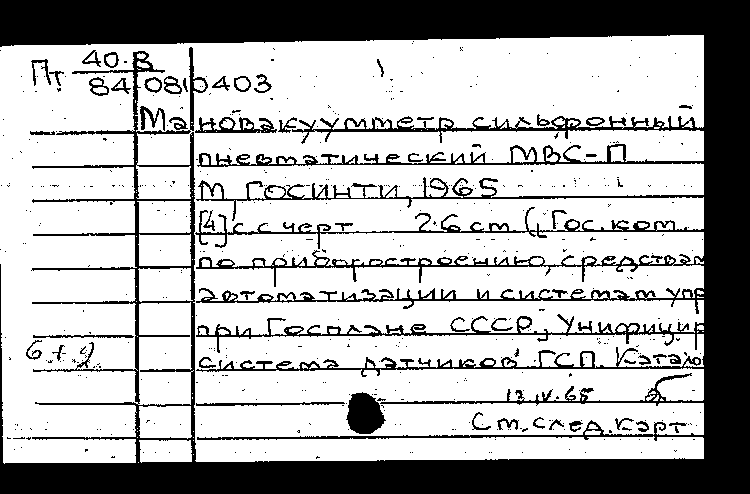 Пт 40-В
84 08(0403
Мановакуумметр сильфонный
пневматический МВС-П
М, ГОСИНТИ, 1965
[4]с.с черт 26 см (Гос. ком.
по приборостроению, средствам
автоматизации и системам упр
при Госплане СССР; Унифицир
система датчиков ГСП. Катало
6+9
13.IV.65
См. след. карт.